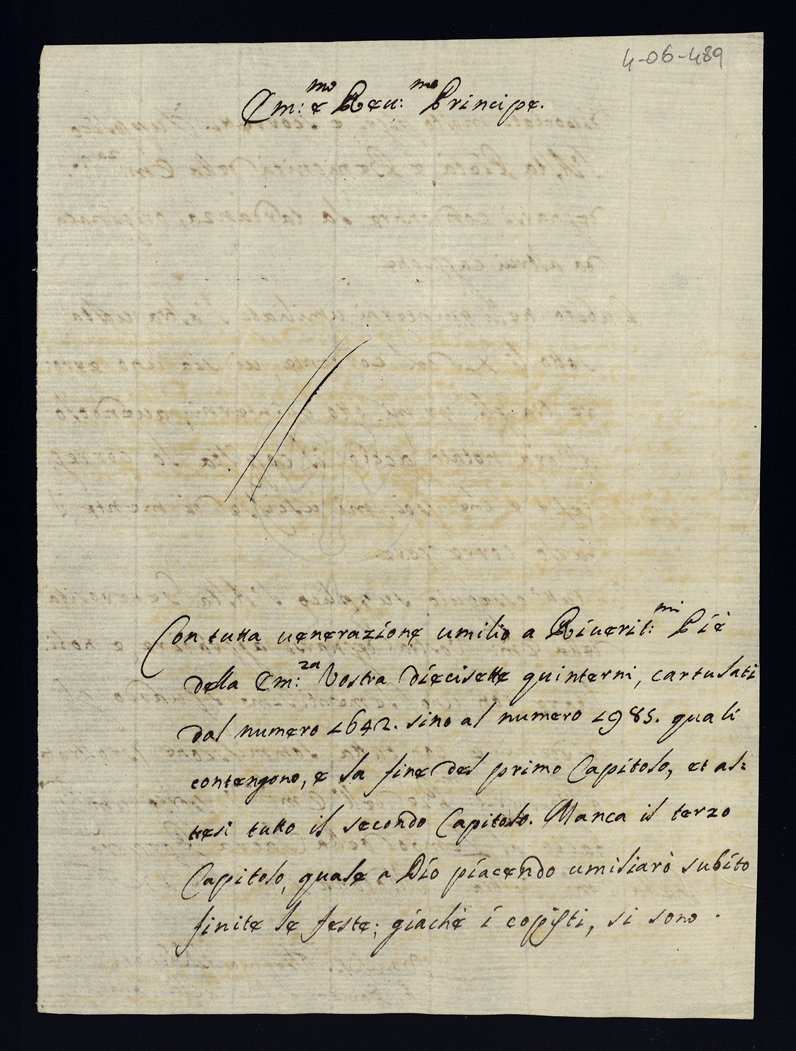 4-06-489
Em:mo e Reu:mo Principe.
Con tutta uenerazione umilio a Riuerit:mi Piè
della Em:za Vostra diecisette quinterni, cartulati
dal numero 1642. sino al numero 1985. quali
contengono, e la fine del primo Capitolo, et al=
tresi tutto il secondo Capitolo. Manca il terzo
Capitolo, quale a Dio piacendo umiliarò subito
finite le feste; giachè i copisti, si sono